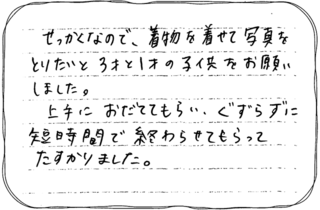 せっかくなので、着物を着せて写真を
とりたいと3才と1才の子供をお願い
しました。
上手におだててもらい、ぐずらずに
短時間で終わらせてもらって
たすかりました。